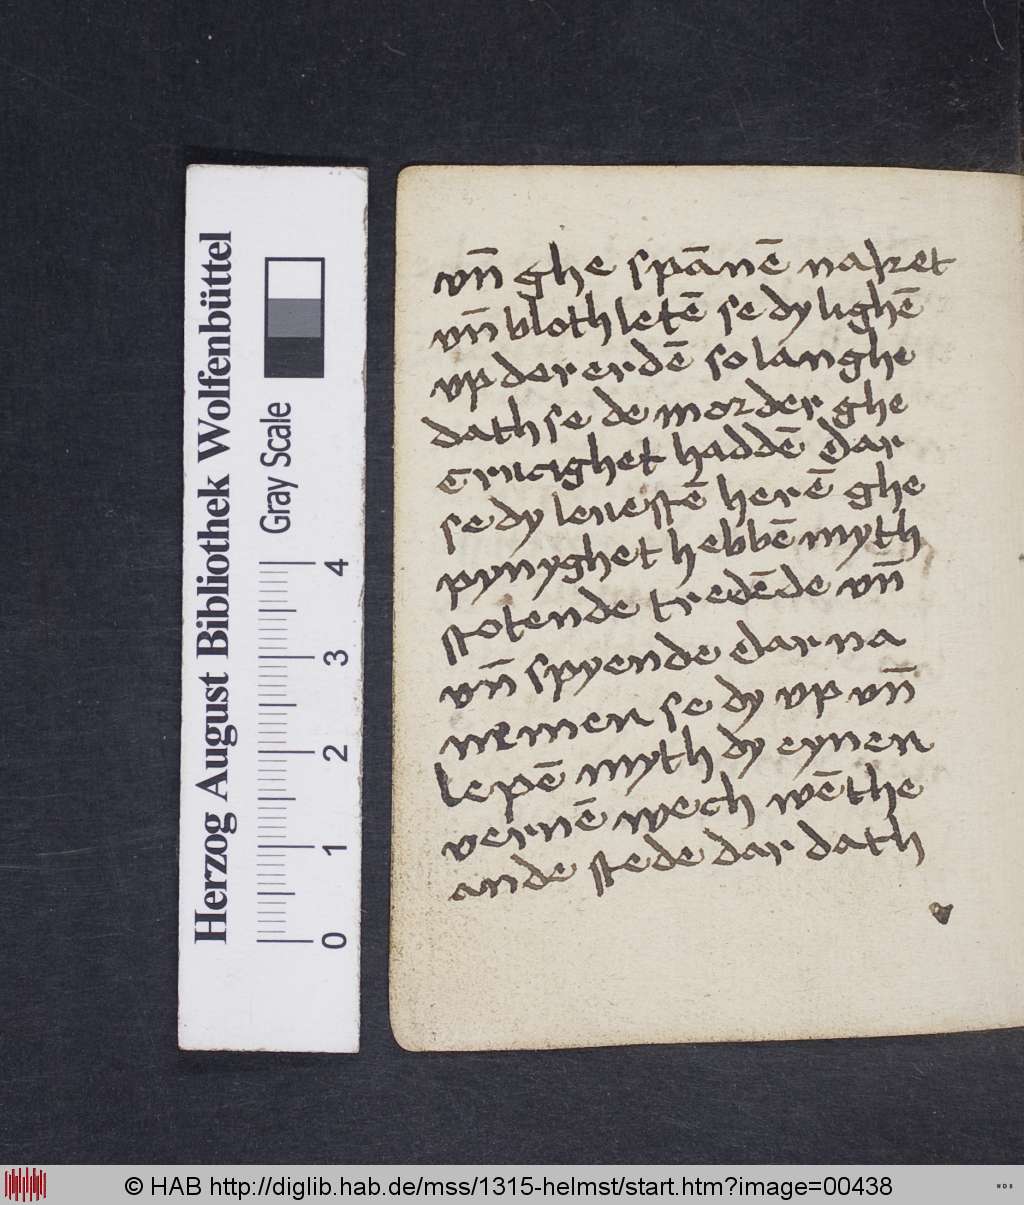 vn̄ ghe spānē naket
vn̄ bloth letē se dy lighē
vp der erdē so langhe
dath se de morder ghe
crucighet haddē Dar
se dy leuestē herē ghe
pynyghet hebbē myth
stotende tredēde vn̄
vn̄ spyende Dar na
nemen se dy vp vn̄
lepē myth dy eynen
vernē wech wēthe
ande stede dar dath
Herzog August Bibliothek Wolfenbüttel
Gray Scale
0 1 2 3 4
© HAB http://diglib.hab.de/mss/1315-helmst/start.htm?image=00438